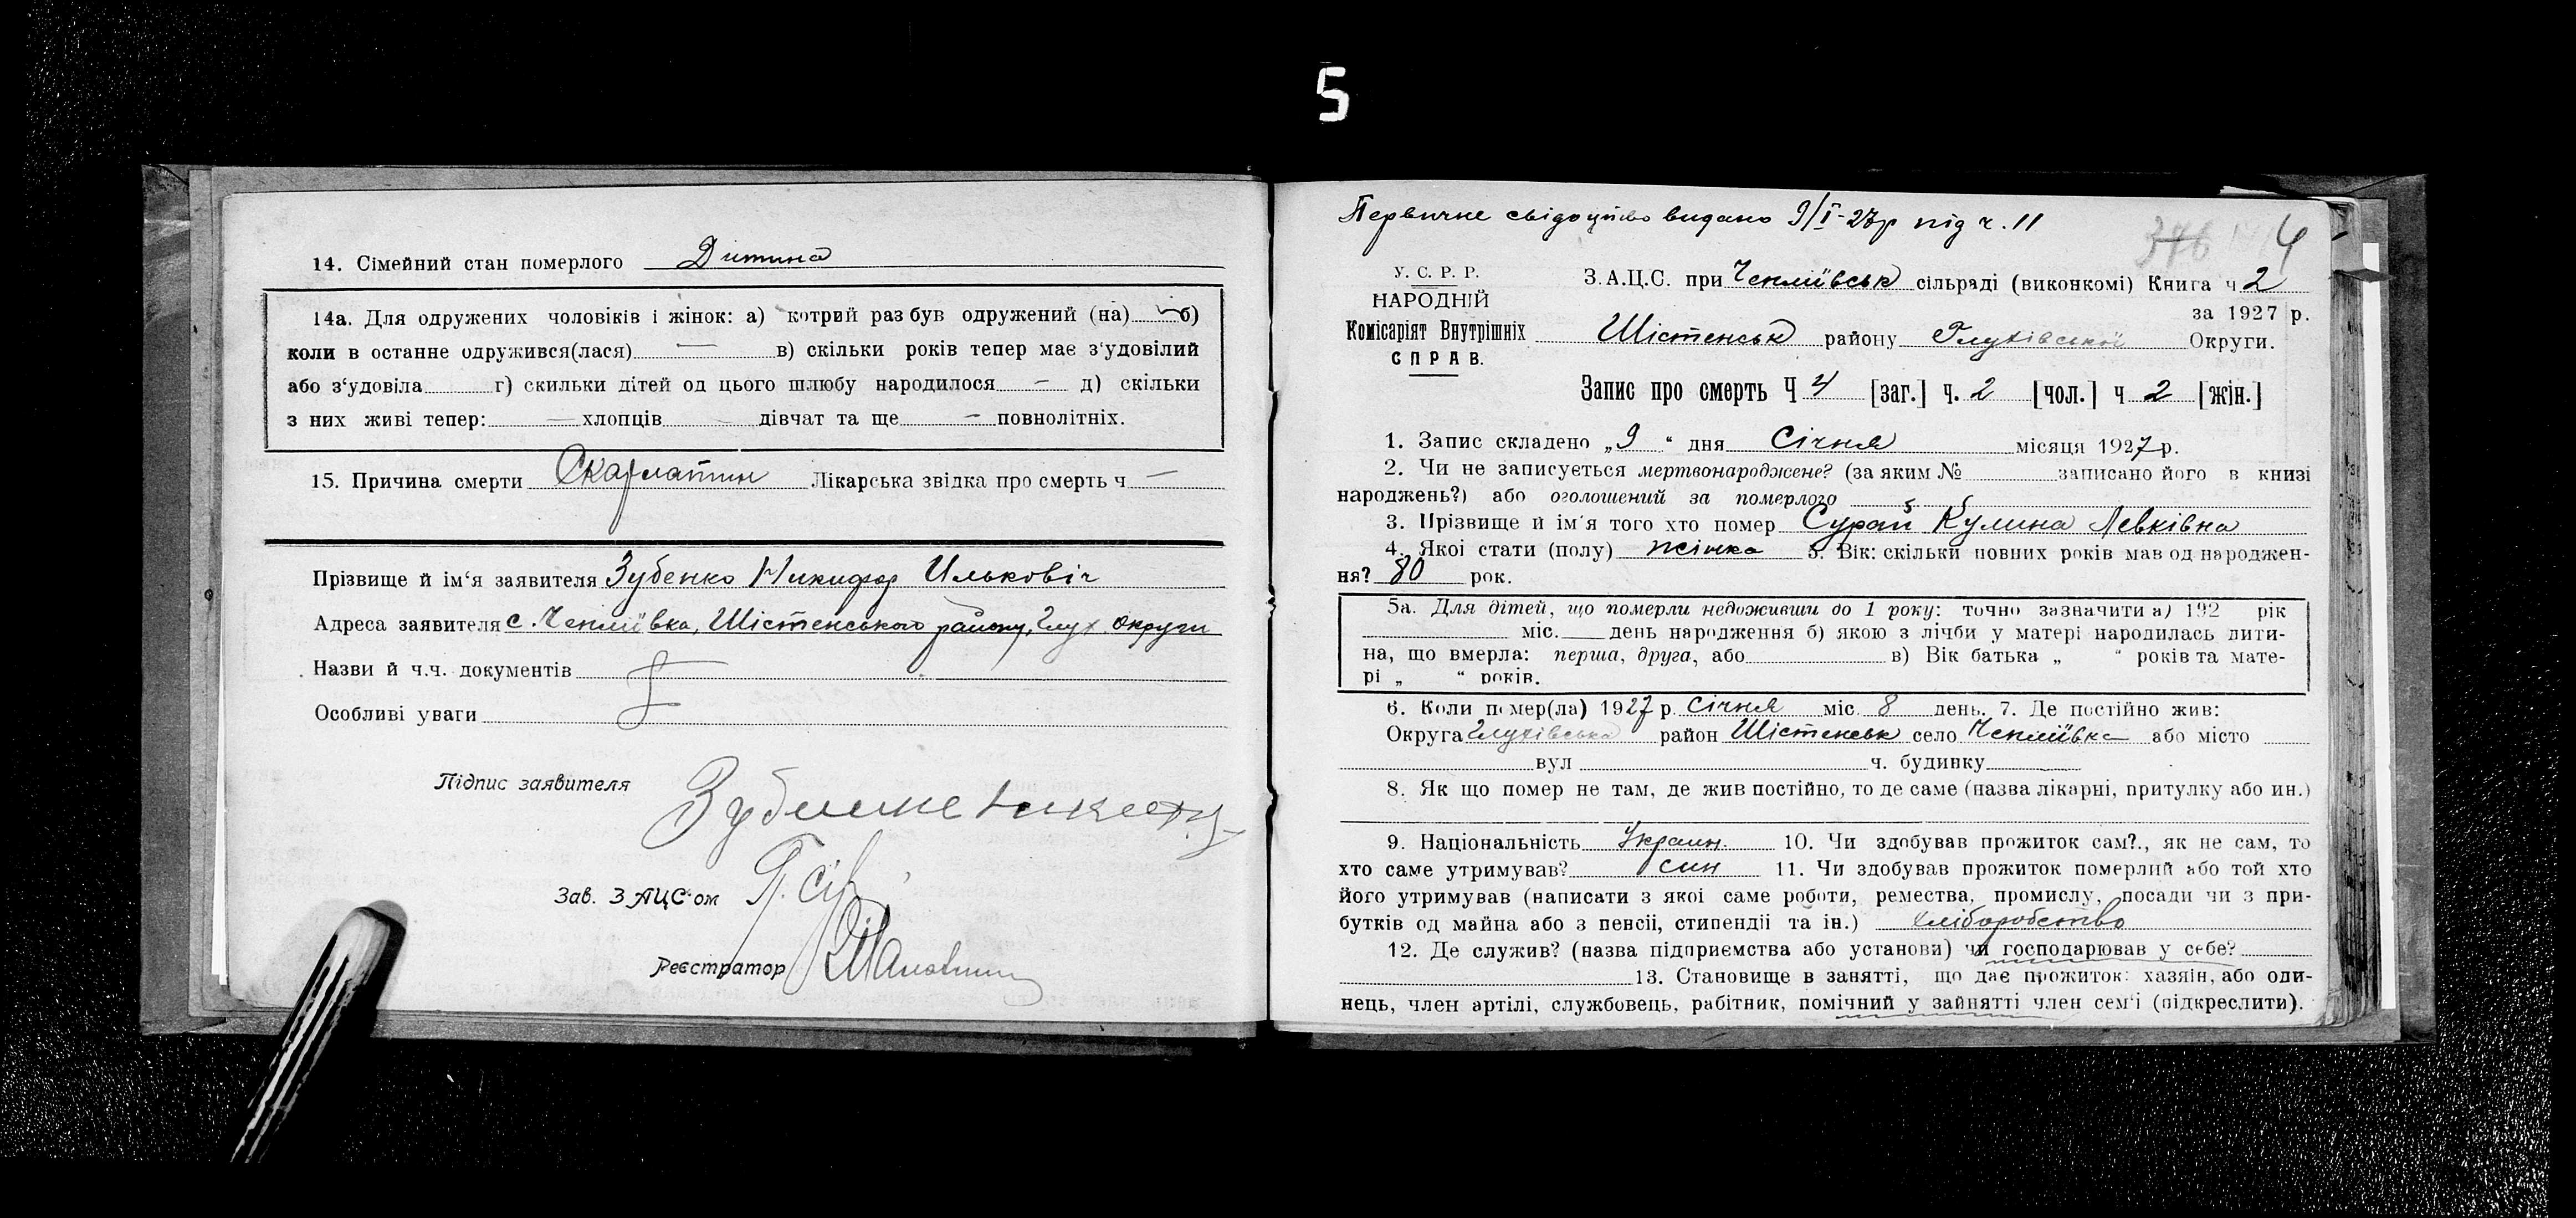 5
14. Сімейний стан померлого Дитина
14а. Для одружених чоловіків і жінок: а) котрий раз був одружений (на) б)
коли в останне одружився(лася) — в) скільки років тепер має з'удовілий
або з'удовіла г) скильки дітей од цього шлюбу народилося — д) скільки
з них живі тепер: — хлопців — дівчат та ще — повнолітніх.
15. Причина смерти Скарлатин Лікарська звідка про смерть ч —
Прізвище й ім'я заявителя Зубенко Никифор Ильковіч
Адреса заявителя с. Чепліївка, Шістенського району, Глух. округи
Назви й ч.ч. документів
Особливі уваги
Підпис заявителя
Зав. ЗАЦС'ом
Реєстратор
Первичне свідоцтво видано 9/I-27р під ч. 11
346 4
У. С. Р. Р.
НАРОДНІЙ
Комісаріят Внутрішніх
СПРАВ.
З.А.Ц.С. при Чепліївськ сільраді (виконкомі) Книга ч 2
за 1927 р.
Шістенськ району Глухівської Округи.
Запис про смерть Ч 4 [заг.] ч. 2 [чол.] ч 2 [жін.]
1. Запис складено „9“ дня Січня місяця 1927 р.
2. Чи не записуеться мертвонароджене? (за яким № записано його в книзі
народжень?) або оголошений за померлого
3. Прізвище й ім'я того хто помер Сурай Кулина Левківна
4. Якоі стати (полу) жінка 5. Вік: скільки повних років мав од народжен-
ня? 80 рок.
5а. Для дітей, що померли недоживши до 1 року: точно зазначити а) 192 рік
міс. день народження б) якою з лічби у матері народилась дити-
на, що вмерла: перша, друга, або в) Вік батька „ “ років та мате-
рі „ “ років.
6. Коли помер(ла) 1927 р. січня міс. 8 день. 7. Де постійно жив:
Округа Глухівська район Шістенськ село Чепліївка або місто
вул ч. будинку
8. Як що помер не там, де жив постійно, то де саме (назва лікарні, притулку або ин.)
9. Національність Украин. 10. Чи здобував прожиток сам?., як не сам, то
хто саме утримував? син 11. Чи здобував прожиток померлий або той хто
його утримував (написати з якоі саме роботи, ремества, промислу, посади чи з при-
бутків од майна або з пенсіі, стипендіі та ін.) хліборобство
12. Де служив? (назва підприємства або установи) чи господарював у себе?
13. Становище в занятті, що дає прожиток: хазяін, або оди-
нець, член артілі, службовець, рабітник, помічний у зайнятті член сем'і (підкреслити).